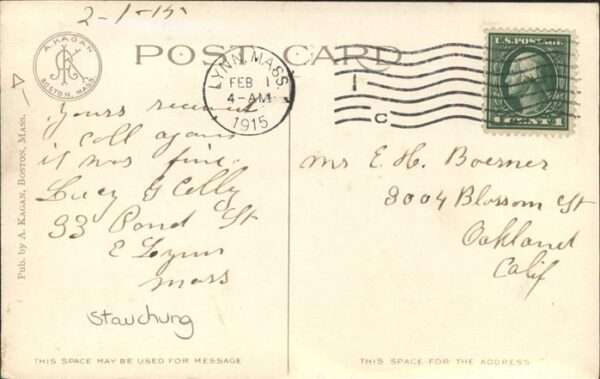 2-1-15
POST CARD
A. KAGAN
BOSTON, MASS.
LYNN, MASS.
FEB 1
4-AM
1915
1
C
U.S. POSTAGE
1 CENT 1
Yours received
call again
it was fine.
Lucy G Celly
33 Pond St
E Lynn
Mass
Mr E. H. Boerner
3004 Blossom St
Oakland
Calif
Stauchung
Pub. by A. KAGAN, BOSTON, MASS.
THIS SPACE MAY BE USED FOR MESSAGE
THIS SPACE IS FOR THE ADDRESS